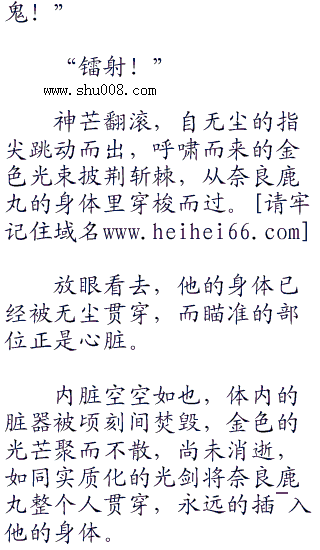 鬼！”
“镭射！”
www.shu008.com
神芒翻滚，自无尘的指
尖跳动而出，呼啸而来的金
色光束披荆斩棘，从奈良鹿
丸的身体里穿梭而过。[请牢
记住域名www.heihei66.com]
放眼看去，他的身体已
经被无尘贯穿，而瞄准的部
位正是心脏。
内脏空空如也，体内的
脏器被顷刻间焚毁，金色的
光芒聚而不散，尚未消逝，
如同实质化的光剑将奈良鹿
丸整个人贯穿，永远的插入
他的身体。